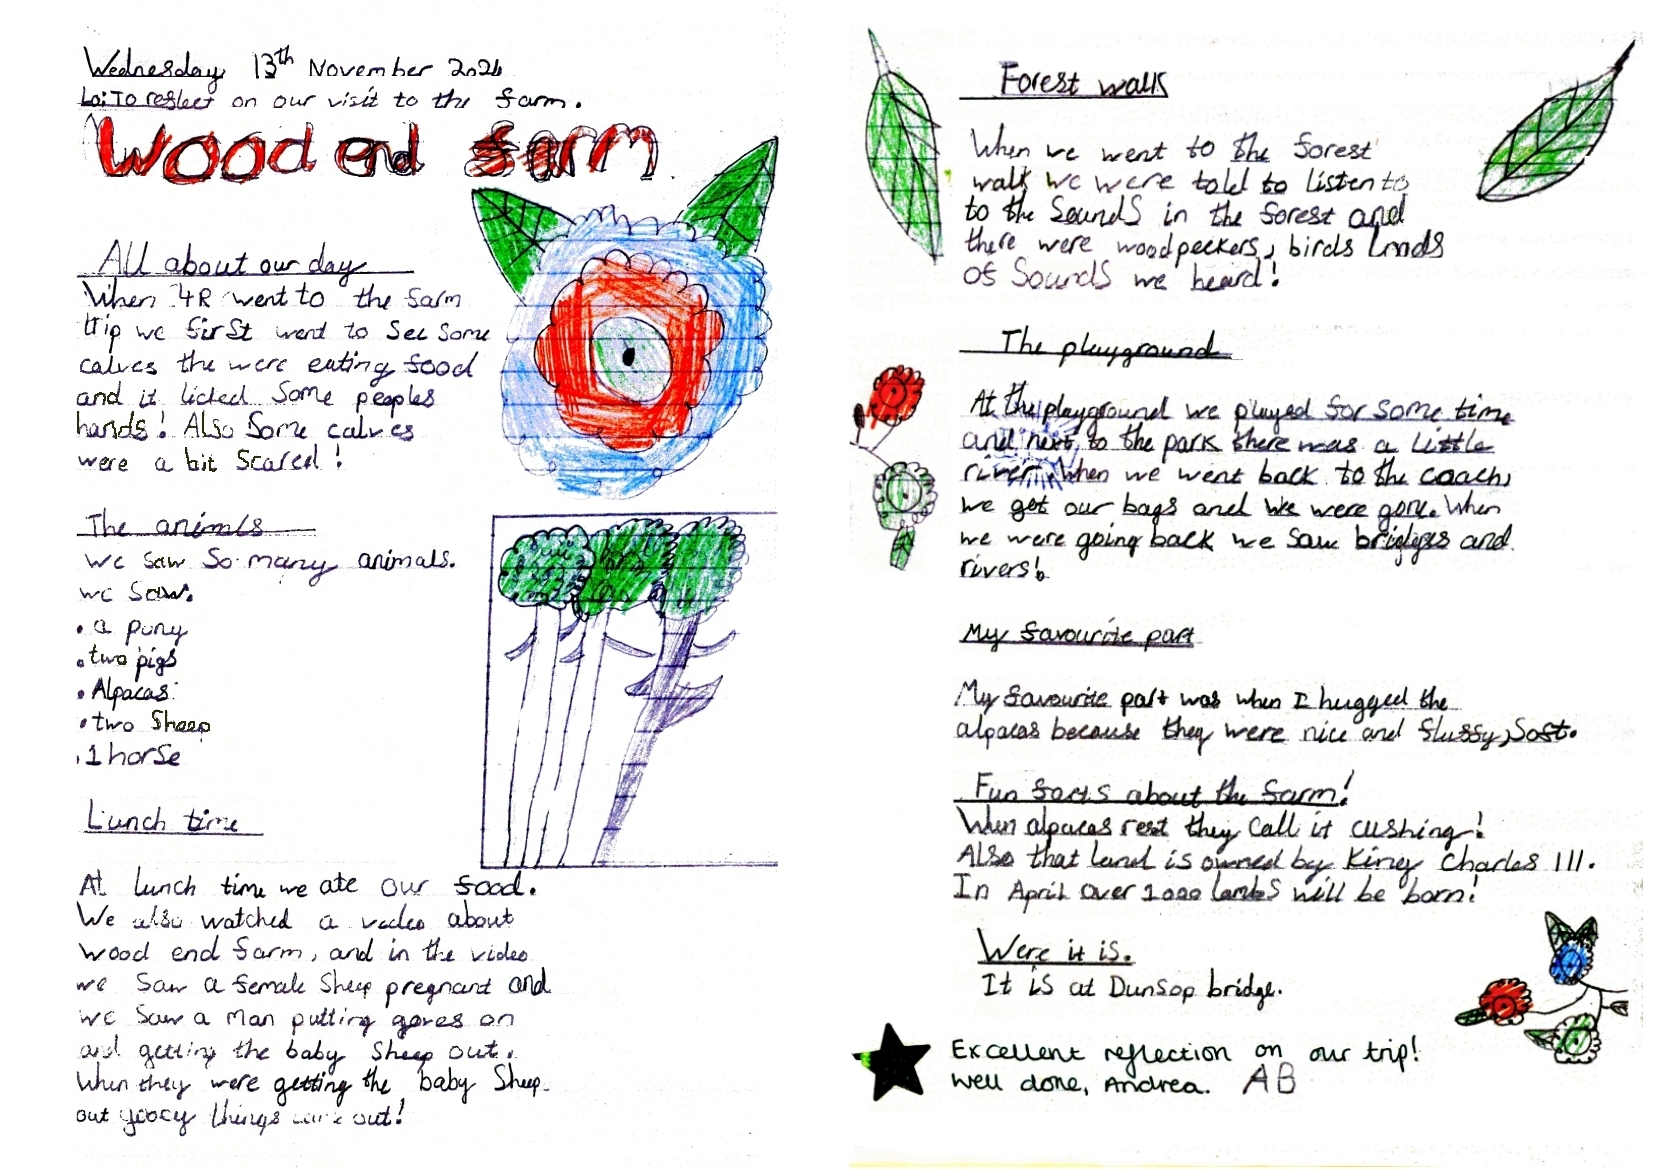 Wednesday 13th November 2024
Lo: To reflect on our visit to the farm.
Wood end farm
All about our day
When 4R went to the farm
trip we first went to see some
calves the were eating food
and it licked some peoples
hands! Also some calves
were a bit scared!
The animals
we saw so many animals.
we saw.
• a pony
• two pigs
• Alpacas
• two sheep
• 1 horse
Lunch time
At lunch time we ate our food.
We also watched a video about
wood end farm, and in the video
we saw a female sheep pregnant and
we saw a man putting goves on
and getting the baby sheep out.
When they were getting the baby sheep
out gooey things came out!
Forest walk
When we went to the forest
walk we were told to listen to
to the sounds in the forest and
there were woodpeckers, birds loads
of sounds we heard!
The playground
At the playground we played for some time
and next to the park there was a little
river. When we went back to the coach,
we got our bags and we were gone. When
we were going back we saw bridges and
rivers!
My favourite part
My favourite part was when I hugged the
alpacas because they were nice and fluffy, soft.
Fun facts about the farm!
When alpacas rest they call it cushing!
Also that land is owned by King Charles III.
In April over 1000 lambs will be born!
Were it is.
It is at Dunsop bridge.
Excellent reflection on our trip!
Well done, Andrea. AB